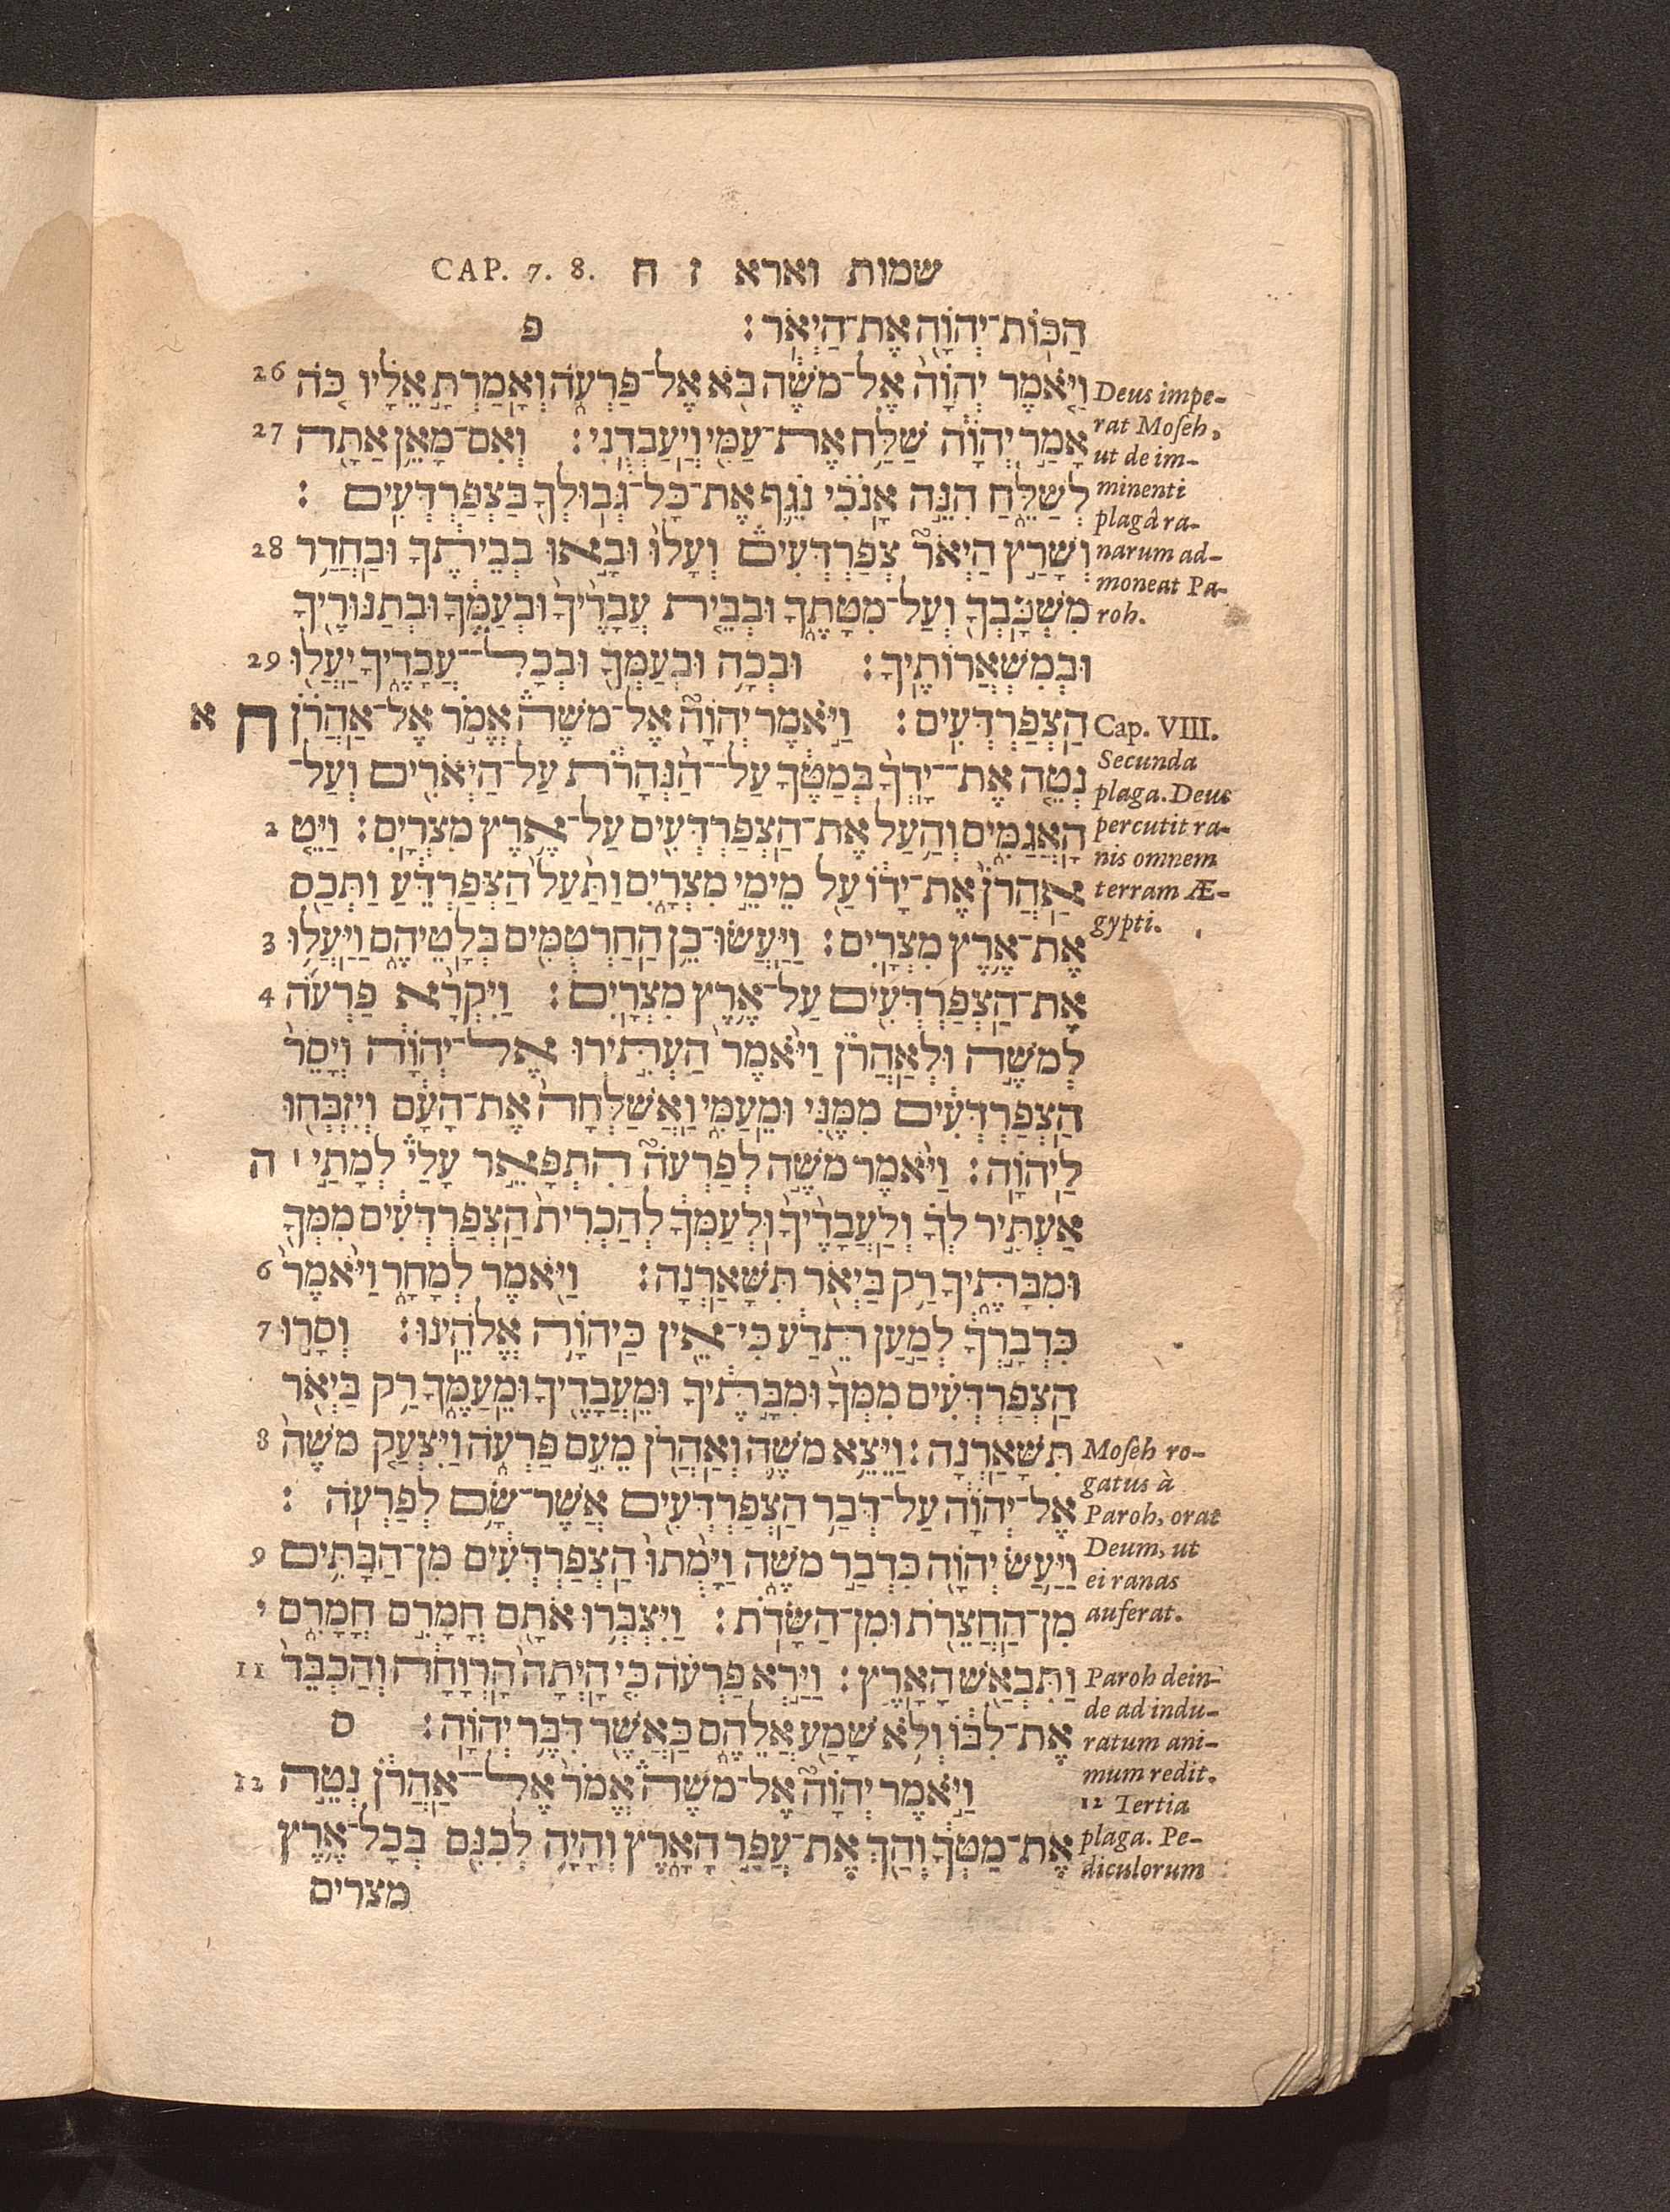 שמות וארא ז ח CAP. 7. 8.
הַכּוֹת־יְהוָה אֶת־הַיְאֹר׃ פ
וַיֹּאמֶר יְהוָה אֶל־מֹשֶׁה בֹּא אֶל־פַּרְעֹה וְאָמַרְתָּ אֵלָיו כֹּה 26
אָמַר יְהוָה שַׁלַּח אֶת־עַמִּי וְיַעַבְדֻנִי׃ וְאִם־מָאֵן אַתָּה 27
לְשַׁלֵּחַ הִנֵּה אָנֹכִי נֹגֵף אֶת־כָּל־גְּבוּלְךָ בַּצְפַרְדְּעִים׃
וְשָׁרַץ הַיְאֹר צְפַרְדְּעִים וְעָלוּ וּבָאוּ בְּבֵיתֶךָ וּבַחֲדַר 28
מִשְׁכָּבְךָ וְעַל־מִטָּתֶךָ וּבְבֵית עֲבָדֶיךָ וּבְעַמֶּךָ וּבְתַנּוּרֶיךָ
וּבְמִשְׁאֲרוֹתֶיךָ׃ וּבְכָה וּבְעַמְּךָ וּבְכָל־עֲבָדֶיךָ יַעֲלוּ 29
הַצְפַרְדְּעִים׃ וַיֹּאמֶר יְהוָה אֶל־מֹשֶׁה אֱמֹר אֶל־אַהֲרֹן ח א
נְטֵה אֶת־יָדְךָ בְּמַטֶּךָ עַל־הַנְּהָרֹת עַל־הַיְאֹרִים וְעַל־
הָאֲגַמִּים וְהַעַל אֶת־הַצְפַרְדְּעִים עַל־אֶרֶץ מִצְרָיִם׃ וַיֵּט 2
אַהֲרֹן אֶת־יָדוֹ עַל מֵימֵי מִצְרָיִם וַתַּעַל הַצְּפַרְדֵּעַ וַתְּכַס
אֶת־אֶרֶץ מִצְרָיִם׃ וַיַּעֲשׂוּ־כֵן הַחַרְטֻמִּים בְּלָטֵיהֶם וַיַּעֲלוּ 3
אֶת־הַצְפַרְדְּעִים עַל־אֶרֶץ מִצְרָיִם׃ וַיִּקְרָא פַרְעֹה 4
לְמֹשֶׁה וּלְאַהֲרֹן וַיֹּאמֶר הַעְתִּירוּ אֶל־יְהוָה וְיָסֵר
הַצְפַרְדְּעִים מִמֶּנִּי וּמֵעַמִּי וַאֲשַׁלְּחָה אֶת־הָעָם וְיִזְבְּחוּ
לַיהוָה׃ וַיֹּאמֶר מֹשֶׁה לְפַרְעֹה הִתְפָּאֵר עָלַי לְמָתַי ׀ ה
אַעְתִּיר לְךָ וְלַעֲבָדֶיךָ וּלְעַמְּךָ לְהַכְרִית הַצְפַרְדְּעִים מִמְּךָ
וּמִבָּתֶּיךָ רַק בַּיְאֹר תִּשָּׁאַרְנָה׃ וַיֹּאמֶר לְמָחָר וַיֹּאמֶר 6
כִּדְבָרְךָ לְמַעַן תֵּדַע כִּי־אֵין כַּיהוָה אֱלֹהֵינוּ׃ וְסָרוּ 7
הַצְפַרְדְּעִים מִמְּךָ וּמִבָּתֶּיךָ וּמֵעֲבָדֶיךָ וּמֵעַמֶּךָ רַק בַּיְאֹר
תִּשָּׁאַרְנָה׃ וַיֵּצֵא מֹשֶׁה וְאַהֲרֹן מֵעִם פַּרְעֹה וַיִּצְעַק מֹשֶׁה 8
אֶל־יְהוָה עַל־דְּבַר הַצְפַרְדְּעִים אֲשֶׁר־שָׂם לְפַרְעֹה׃
וַיַּעַשׂ יְהוָה כִּדְבַר מֹשֶׁה וַיָּמֻתוּ הַצְפַרְדְּעִים מִן־הַבָּתִּים 9
מִן־הַחֲצֵרֹת וּמִן־הַשָּׂדֹת׃ וַיִּצְבְּרוּ אֹתָם חֳמָרִם חֳמָרִם י
וַתִּבְאַשׁ הָאָרֶץ׃ וַיַּרְא פַּרְעֹה כִּי הָיְתָה הָרְוָחָה וְהַכְבֵּד 11
אֶת־לִבּוֹ וְלֹא שָׁמַע אֲלֵהֶם כַּאֲשֶׁר דִּבֶּר יְהוָה׃ ס
וַיֹּאמֶר יְהוָה אֶל־מֹשֶׁה אֱמֹר אֶל־אַהֲרֹן נְטֵה 12
אֶת־מַטְּךָ וְהַךְ אֶת־עֲפַר הָאָרֶץ וְהָיָה לְכִנִּם בְּכָל־אֶרֶץ
מצרים
Deus impe-
rat Moseh,
ut de im-
minenti
plagâ ra-
narum ad-
moneat Pa-
roh.
Cap. VIII.
Secunda
plaga. Deus
percutit ra-
nis omnem
terram Æ-
gypti.
Moseh ro-
gatus à
Paroh, orat
Deum, ut
ei ranas
auferat.
Paroh dein-
de ad indu-
ratum ani-
mum redit.
12 Tertia
plaga. Pe-
diculorum